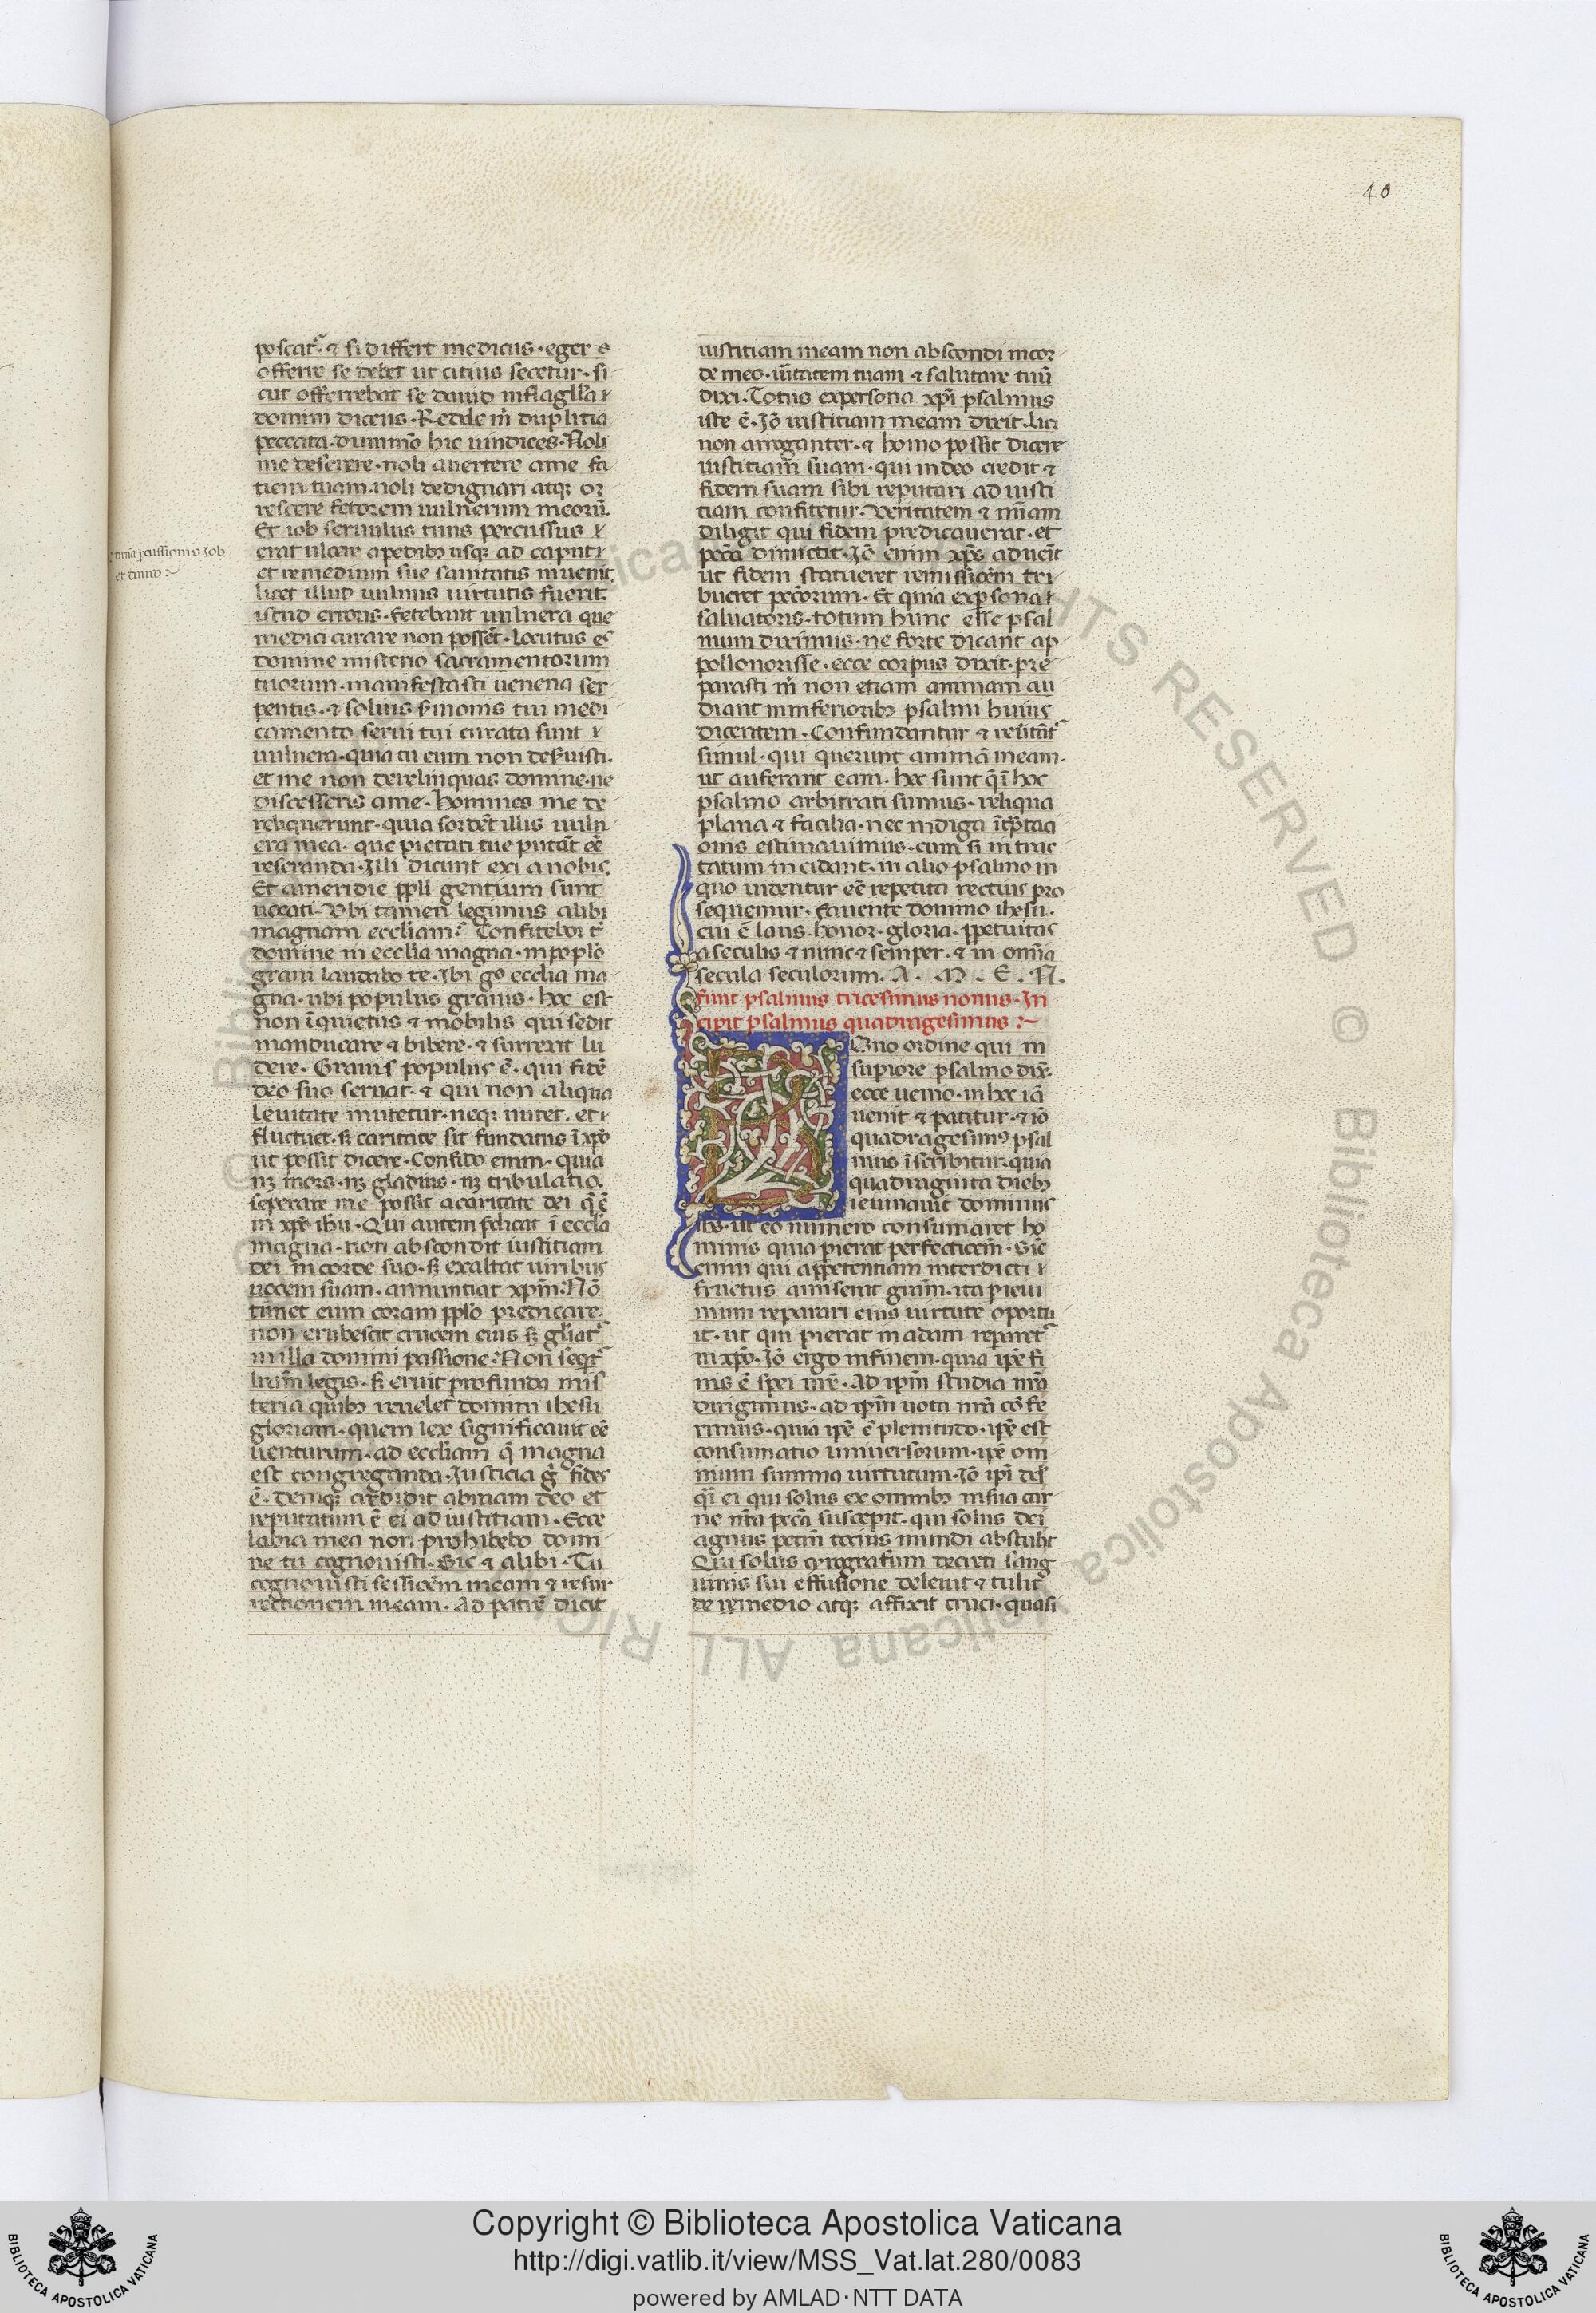 40
poscat᷑. ⁊ si differt medicus. eger
offerre se debet ut citius secetur. si
cut offerrebat se dauid in flagella
domini dicens. Redde m̄ duplitia
peccata. dummō hic uindices. Noli
me deserere. noli auertere a me fa
tiem tuam. noli dedignari atqꝫ or
rescere fetorem uulnerum meorū.
Et iob seruulus tuus percussus
erat ulcere a pedibꝫ usqꝫ ad caput
et remedium sue sanitatis inuenit.
licet illud uulnus uirtutis fuerit.
istud erroris. fetebant uulnera que
medici curare non possēt. Locutus es
domine misterio sacramentorum
tuorum. manifestasti uenena ser
pentis. ⁊ solius s̄monis tui medi
camento serui tui curata sunt
uulnera. quia tu eum non deseruisti.
et me non derelinquas domine. ne
discesseris a me. homines me de
reliquerunt. quia sordēt illis uuln
era mea. que pietati tue putāt eē
reseranda. Illi dicunt exi a nobis.
Et a meridie ppłi gentium sunt
uocati. Vbi tamen legimus alibi
magnam eccłiam? Confitebor t̄
domine in ecclīa magna. in poplō
graui laudabo te. Ibi gͦ ecclīa ma
gna. ubi populus grauis. hoc est
non īquietus ⁊ mobilis qui sedit
manducare ⁊ bibere. ⁊ surrexit lu
dere. Grauis populus ē. qui fidē
deo suo seruat. ⁊ qui non aliqua
leuitate mutetur. neqꝫ nutet. et
fluctuet. sꝫ caritate sit fundatus ī xp̄o
ut possit dicere. Confido enim. quia
nꝫ mors. nꝫ gladius. nꝫ tribulatio.
seperare me possit a caritate dei q̄ ē
in xp̄o ih̄u. Qui autem p̄dicat ī eccłia
magna. non abscondit iustitiam
dei in corde suo. sꝫ exaltat uiribus
uocem suam. annuntiat xp̄m. Nō
timet eum coram pplō predicare.
non erubescit crucem eius sꝫ gl̄iat᷑
in illa domini passione. Non seqt᷑
lr̄am legis. sꝫ eruit profunda mis
teria quibꝫ reuelet domini ihesu
gloriam. quem lex significauit eē
uenturum. ad eccłiam q̄ magna
est congreganda. Iusticia g̊ fides
ē. deniqꝫ credidit abraam deo et
reputatum ē ei ad iustitiam. Ecce
labia mea non prohibebo domi
ne tu cognouisti. Sic ⁊ alibi. Tu
cognouisti sessiōem meam ⁊ resur
rectionem meam. Ad patrē dicit
iustitiam meam non abscondi in cor
de meo. uītatem tuam ⁊ salutare tuū
dixi. Totus ex persona xp̄i psalmus
iste ē. Iō iustitiam meam dixit. licꝫ
non arroganter. ⁊ homo possit dicere
iustitiam suam. qui in deo credit ⁊
fidem suam sibi reputari ad iusti
tiam confitetur. Veritatem ⁊ mīam
diligit qui fidem predicauerat. et
pccā dimictit. Iō enim xp̄s aduēit
ut fidem statueret remissiōem tri
bueret pccōrum. Et quia ex p̱sona
saluatoris. totum hunc esse psal
mum diximus. ne forte dicant ap
pollonorisse. ecce corpus dixit. pre
parasti m̄ non etiam animam au
diant in inferioribꝫ psalmi huius
dicentem. Confundantur ⁊ reu̅eāt᷑
simul. qui querunt animā meam.
ut auferant eam. hec sunt q̄ ī hoc
psalmo arbitrati sumus. reliqua
plana ⁊ facilia. nec indiga īt̄p̄tati
onis estimauimus. cum si in trac
tatum incidant. in alio psalmo in
quo uidentur eē repetita rectius pro
sequemur. fauente domino ihesu.
cui ē laus. honor. gloria. ꝑpetuitas
a seculis ⁊ nunc ⁊ semper. ⁊ in om̄ia
secula seculorum. A. M. E. N.
finit psalmus tricesimus nonus. In
cipit psalmus quadragesimus :~
Quo ordine qui in
supiore psalmo dixͭ.
ecce uenio. in hoc iā
uenit ⁊ patitur. ⁊ iō
quadragesimꝰ psal
mus īscribitur. quia
quadraginta diebꝫ
ieiunauit dominus
ih̄s. ut eo numero consumaret ho
minis quia pierat perfectiōem. Sic
enim qui appetentiam interdicti
fructus amiserat grām. ita p ieiu
nium reparari eius uirtute oportu
it. ut qui pierat in adam reparet᷑
in xp̄o. Iō ergo in finem. quia ip̄e fi
nis ē spei nr̄e. Ad ip̄m studia nr̄a
dirigimus. ad ip̄m uota nr̄a cōfe
rimus. quia ip̄e ē plenitudo. ip̄e est
consumatio uniuersorum. ip̄e om
nium summa uirtutum. Iō ip̄i
q̄i ei qui solus ex omnibꝫ in sua car
ne nr̄a pccā suscepit. qui solus dei
agnus pctm̄ tocius mundi abstulit
Qui solus cyrografum decreti sang
uinis sui effusione deleuit ⁊ tulit
de remedio atqꝫ affixit cruci. quasi
pcussionis Iob
et dauid :~
Copyright © Biblioteca Apostolica Vaticana
http://digi.vatlib.it/view/MSS_Vat.lat.280/0083
powered by AMLAD·NTT DATA
BIBLIOTECA APOSTOLICA VATICANA
BIBLIOTECA APOSTOLICA VATICANA
© Biblioteca Apostolica Vaticana ALL RIGHTS RESERVED